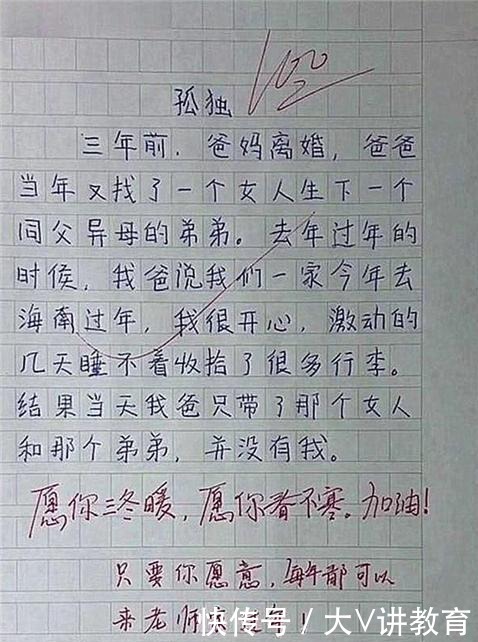 100
孤独
三年前，爸妈离婚，爸爸
当年又找了一个女人生下一个
同父异母的弟弟。去年过年的
时候，我爸说我们一家今年去
海南过年，我很开心，激动的
几天睡不着收拾了很多行李。
结果当天我爸只带了那个女人
和那个弟弟，并没有我。
愿你三冬暖，愿你春不寒。加油！
只要你愿意，每年都可以
来老师
快传号 / 大V讲教育